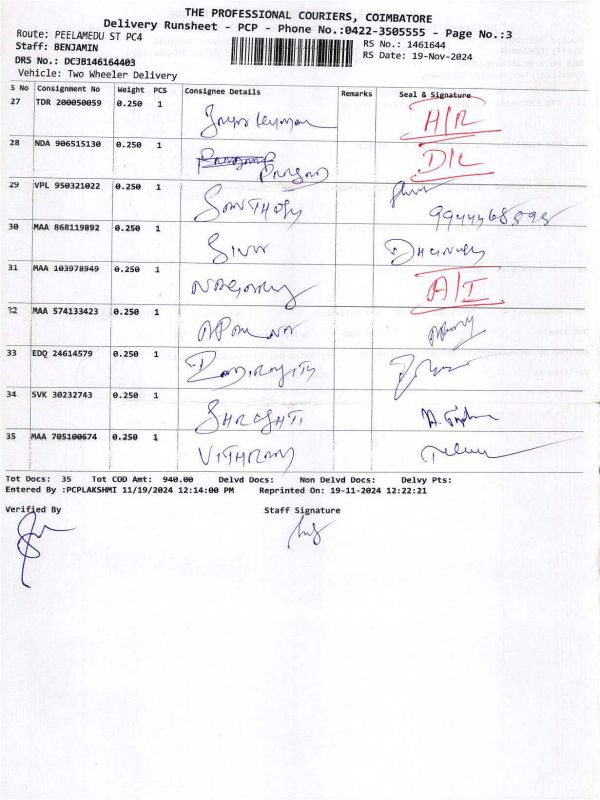 THE PROFESSIONAL COURIERS, COIMBATORE
Delivery Runsheet - PCP - Phone No.:0422-3505555 - Page No.:3
Route: PEELAMEDU ST PC4
RS No.: 1461644
Staff: BENJAMIN
RS Date: 19-Nov-2024
DRS No.: DCJB146164403
Vehicle: Two Wheeler Delivery
S No Consignment No Weight PCS Consignee Details Remarks Seal & Signature
27 TDR 200050059 0.250 1 H/R
28 NDA 906515130 0.250 1 D/L
29 VPL 950321022 0.250 1 SANTHOSH
30 MAA 868119892 0.250 1
31 MAA 103978949 0.250 1 A/I
32 MAA 574133423 0.250 1
33 EDQ 24614579 0.250 1
34 SVK 30232743 0.250 1
35 MAA 705100674 0.250 1
Tot Docs: 35 Tot COD Amt: 940.00 Delvd Docs: Non Delvd Docs: Delvy Pts:
Entered By :PCPLAKSHMI 11/19/2024 12:14:00 PM Reprinted On: 19-11-2024 12:22:21
Verified By Staff Signature